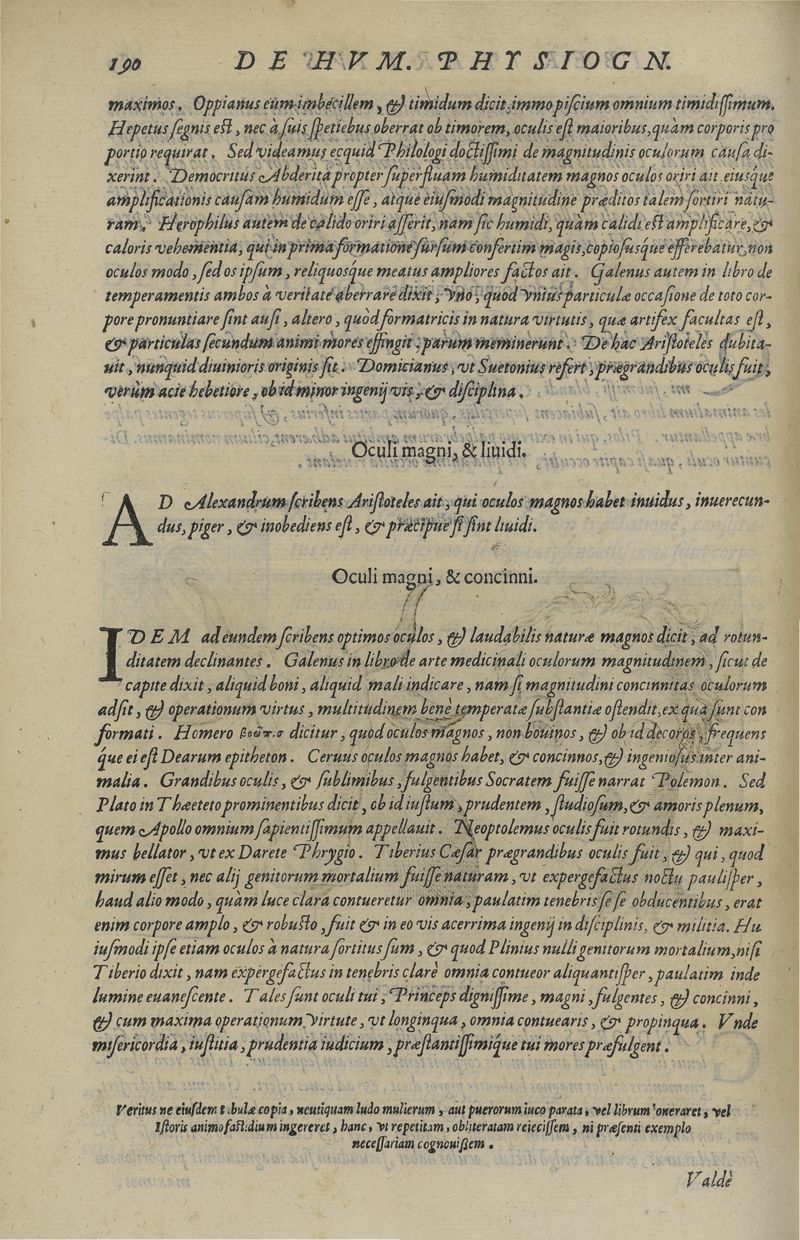 190 DE HVM. PHYSIOGN.
maximos. Oppianus eum imbecillem, & timidum dicit, immo piscium omnium timidissimum.
Hepetus segnis est, nec à suis spetiebus oberrat ob timorem, oculis est maioribus, quàm corporis pro
portio requirat. Sed videamus ecquid Philologi doctissimi de magnitudinis oculorum causa di-
xerint. Democritus Abderita propter superfluam humiditatem magnos oculos oriri ait eiusque
amplificationis causam humidum esse, atque eiusmodi magnitudine præditos talem sortiri natu-
ram. Herophilus autem de calido oriri asserit, nam sic humidi, quàm calidi est amplificare, &
caloris vehementia, qui in prima formatione sursum confertim magis, copiosusque efferebatur, non
oculos modo, sed os ipsum, reliquosque meatus ampliores factos ait. Galenus autem in libro de
temperamentis ambos à veritate aberrare dixit, vno, quod vnius particulæ occasione de toto cor-
pore pronuntiare sint ausi, altero, quòd formatricis in natura virtutis, quæ artifex facultas est,
& particulas secundum animi mores effingit, parum meminerunt. De hac Aristoteles dubita-
uit, nunquid diuinioris originis sit. Domicianus, vt Suetonius refert, prægrandibus oculis fuit,
verùm acie hebetiore, ob id minor ingenij vis, & disciplina.
Oculi magni, & liuidi.
AD Alexandrum scribens Aristoteles ait, qui oculos magnos habet inuidus, inuerecun-
dus, piger, & inobediens est, & præcipue si sint liuidi.
Oculi magni, & concinni.
IDEM ad eundem scribens optimos oculos, & laudabilis naturæ magnos dicit, ad rotun-
ditatem declinantes. Galenus in libro de arte medicinali oculorum magnitudinem, sicut de
capite dixit, aliquid boni, aliquid mali indicare, nam si magnitudini concinnitas oculorum
adsit, & operationum virtus, multitudinem benè temperatæ substantiæ ostendit, ex qua sunt con
formati. Homero dicitur, quod oculos magnos, non bouinos, & ob id decoros, frequens
que ei est Dearum epitheton. Ceruus oculos magnos habet, & concinnos, & ingeniosus inter ani-
malia. Grandibus oculis, & sublimibus, fulgentibus Socratem fuisse narrat Polemon. Sed
Plato in Thæeteto prominentibus dicit, ob id iustum, prudentem, studiosum, & amoris plenum,
quem Apollo omnium sapientissimum appellauit. Neoptolemus oculis fuit rotundis, & maxi-
mus bellator, vt ex Darete Phrygio. Tiberius Cæsar prægrandibus oculis fuit, & qui, quod
mirum esset, nec alij genitorum mortalium fuisse naturam, vt expergefactus noctu paulisper,
haud alio modo, quàm luce clara contueretur omnia, paulatim tenebris sese obducentibus, erat
enim corpore amplo, & robusto, fuit & in eo vis acerrima ingenij in disciplinis, & militia. Hu
iusmodi ipse etiam oculos à natura sortitus sum, & quod Plinius nulli genitorum mortalium, nisi
Tiberio dixit, nam expergefactus in tenebris clarè omnia contueor aliquantisper, paulatim inde
lumine euanescente. Tales sunt oculi tui, Princeps dignissime, magni, fulgentes, & concinni,
& cum maxima operationum virtute, vt longinqua, omnia contuearis, & propinqua. Vnde
misericordia, iustitia, prudentia iudicium, præstantissimique tui mores præfulgent.
Veritus ne eiusdem tabulæ copia, neutiquam ludo mulierum, aut puerorum iuco parata, vel librum oneraret, vel
istoris animo fastidium ingereret, hanc, vt repetitam, obliteratam reiecissem, ni præsenti exemplo
necessariam cognouissem.
Valdè